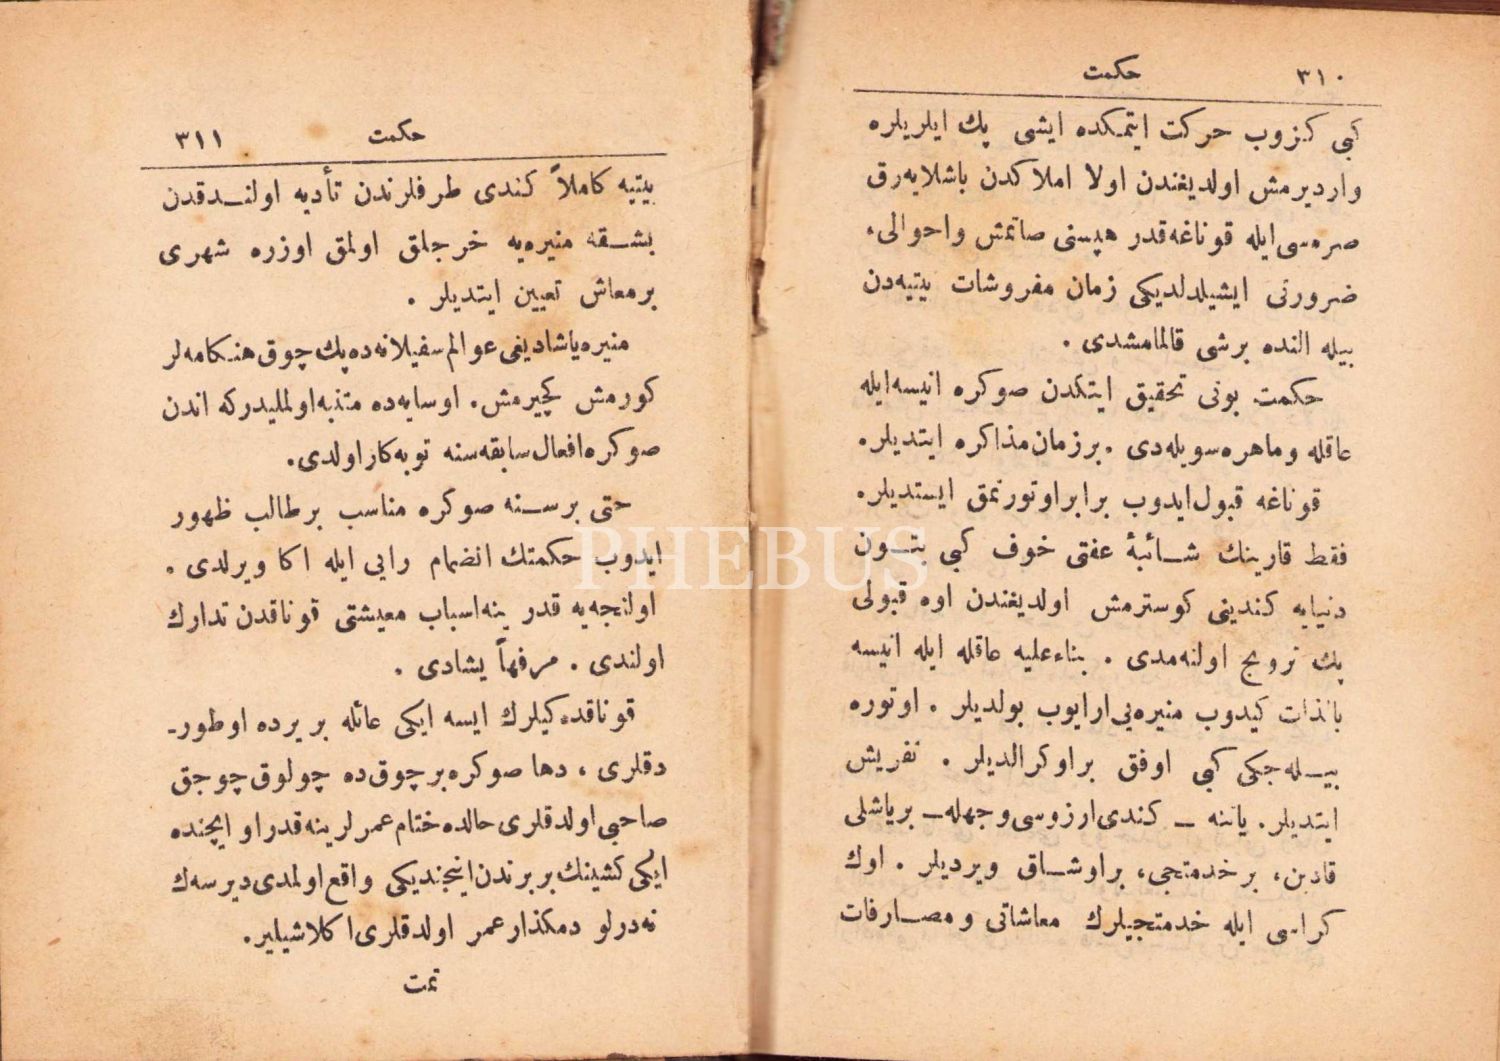 ٣١٠ حكمت
كبی كزوب حركت ایتمكده ایشی پك ایلریلره
واردیرمش اولدیغندن اولا املاكدن باشلایه‌رق
صره‌سی ایله قوناغه قدر هپسنی صاتمش و احوالی‌ء
ضرورتی ایشیلدلدیكی زمان مفروشات بیتیه‌دن
بیله النده برشی قالمامشدی .
حكمت بونی تحقیق ایتكدن صوكره انیسه ایله
عاقله و ماهره سویله‌دی . برزمان مذاكره ایتدیلر.
قوناغه قبول ایدوب برابر اوتورتمق ایستدیلر.
فقط قارینك شـائبهٔ عفتی خوف كبی بتـون
دنیایه كندینی كوسترمش اولدیغندن اوه قبولی
پك ترویج اولنه‌مدی . بناء علیه عاقله ایله انیسه
بالذات كیدوب منیره‌یی ارایوب بولدیلر . اوتوره
بیـله‌جكی كبی اوفق براو كرالدیلر . تفریش
ایتدیلر. یاننه ـ كندی ارزوسی وجهله ـ بریاشلی
قادین، برخدمتجی، براوشـاق ویردیلر . اوك
كراسی ایله خدمتجیلرك معاشاتی و مصـارفات
حكمت ٣١١
بیتیه كاملاً كندی طرفلرندن تأدیه اولنـدقدن
بشـقه منیره‌یه خرجلق اولمق اوزره شهری
برمعاش تعیین ایتدیلر .
منیره یاشادیغی عوالم سفیلانه‌ده پك چوق هنكامه‌لر
كورمش كچیرمش. اوسایه‌ده متنبه اولملیدركه اندن
صوكره افعال سابقه‌سنه توبه‌كار اولدی.
حتی برسـنه صوكره مناسب برطالب ظهور
ایدوب حكمتك انضمام رایی ایله اكا ویرلدی .
اولنجه‌یه قدر ینه اسباب معیشتی قوناقدن تدارك
اولندی . مرفهاً یشادی .
قوناقده‌كیلرك ایسه ایكی عائله بریرده اوطورـ
دقلری ، دها صوكره برچوق ده چولوق چوجق
صاحبی اولدقلری حالده ختام عمرلرینه قدراو ایچنده
ایكی كشینك بربرندن اینجندیكی واقع اولمدی دیرسه‌ك
نه درلو دمكذار عمر اولدقلری اكلاشیلیر.
تمت
PHEBUS